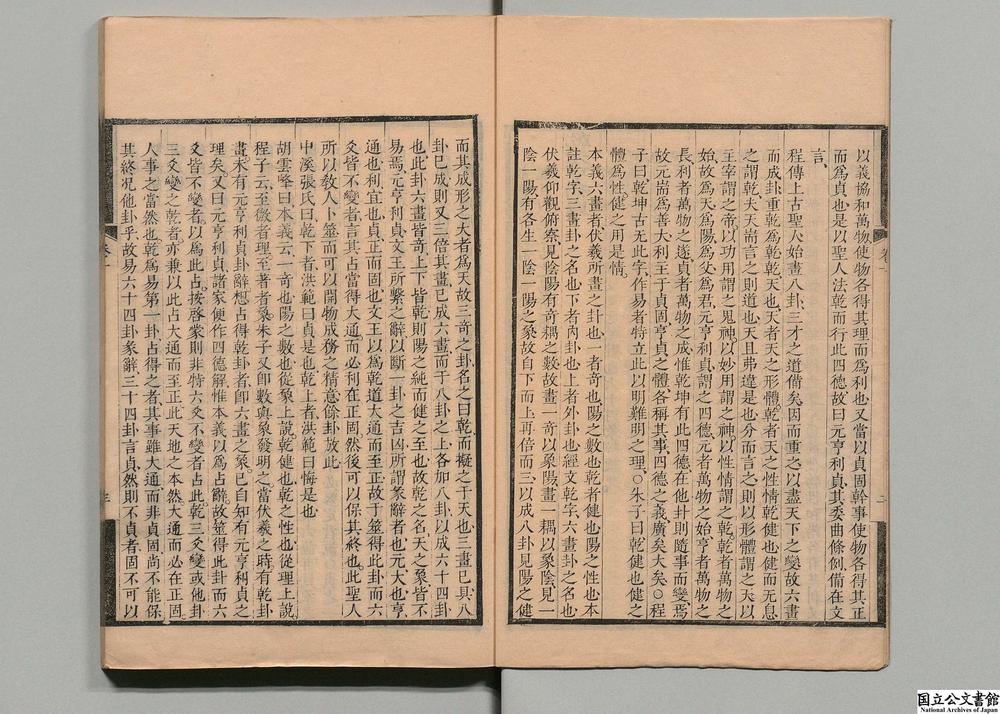 以義協和萬物使物各得其理而爲利也又當以貞固幹事使物各得其正
而爲貞也是以聖人法乾而行此四德故曰元亨利貞其委曲條例備在文
言
程傳上古聖人始畫八卦三才之道備矣因而重之以盡天下之變故六畫
而成卦重乾爲乾乾天也天者天之形體乾者天之性情乾健也健而无息
之謂乾夫天耑言之則道也天且弗違是也分而言之則以形體謂之天以
主宰謂之帝以功用謂之鬼神以妙用謂之神以性情謂之乾乾者萬物之
始故爲天爲陽爲父爲君元亨利貞謂之四德元者萬物之始亨者萬物之
長利者萬物之遂貞者萬物之成惟乾坤有此四德在他卦則隨事而變焉
故元耑爲善大利主于貞固亨貞之體各稱其事四德之義廣矣大矣○程
子曰乾坤古无此字作易者特立此以明難明之理○朱子曰乾健也健之
體爲性健之用是情
本義六畫者伏羲所畫之卦也一者奇也陽之數也乾者健也陽之性也本
註乾字三畫卦之名也下者內卦也上者外卦也經文乾字六畫卦之名也
伏羲仰觀俯察見陰陽有奇耦之數故畫一奇以象陽畫一耦以象陰見一
陰一陽有各生一陰一陽之象故自下而上再倍而三以成八卦見陽之健
而其成形之大者爲天故三奇之卦名之曰乾而擬之于天也三畫已具八
卦已成則又三倍其畫已成六畫而于八卦之上各加八卦以成六十四卦
也此卦六畫皆奇上下皆乾則陽之純而健之至也故乾之名天之象皆不
易焉元亨利貞文王所繫之辭以斷一卦之吉凶所謂彖辭者也元大也亨
通也利宜也貞正而固也文王以爲乾道大通而至正故于筮得此卦而六
爻皆不變者言其占當得大通而必利在正固然後可以保其終也此聖人
所以敎人卜筮而可以開物成務之精意餘卦放此
中溪張氏曰乾下者洪範曰貞是也乾上者洪範曰悔是也
胡雲峰曰本義云一奇也陽之數也從象上說乾健也乾之性也從理上說
程子云至微者理至著者象朱子又卽數與象發明之當伏羲之時有乾卦
畫未有元亨利貞卦辭想占得乾卦者卽六畫之象已自知有元亨利貞之
理矣又曰元亨利貞諸家便作四德解惟本義以爲占辭故筮得此卦而六
爻皆不變者以爲此占按啓蒙則非特六爻不變者占此乾三爻變或他卦
三爻變之乾者亦兼以此占大通而至正此天地之本然大通而必在正固
人事之當然也乾爲易第一卦占得之者其事雖大通而非貞固尚不能保
其終况他卦乎故易六十四卦彖辭三十四卦言貞然則不貞者固不可以
国立公文書館
National Archives of Japan